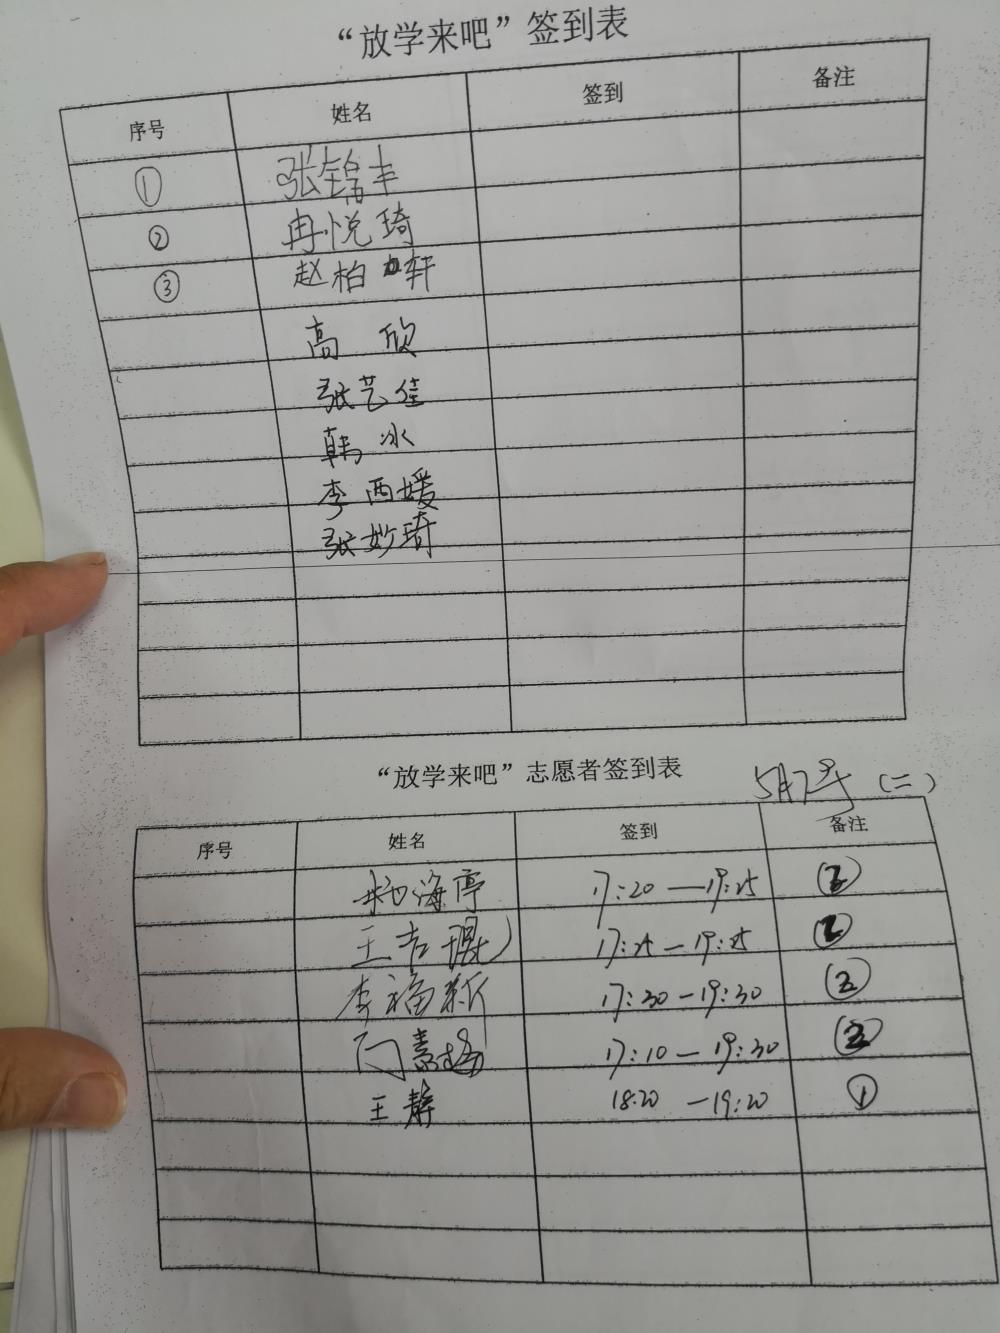 “放学来吧”签到表
序号 姓名 签到 备注
① 张锦丰
② 冉悦琦
③ 赵柏轩
高欣
张艺佳
韩冰
李西媛
张妙琦
“放学来吧”志愿者签到表 5月7号(二)
序号 姓名 签到 备注
海亭 17:20—19:25 ②
王吉琨 17:25—19:25 ②
李福新 17:30—19:30 ②
闫素梅 17:10—19:30 ②
王静 18:20—19:20 ①